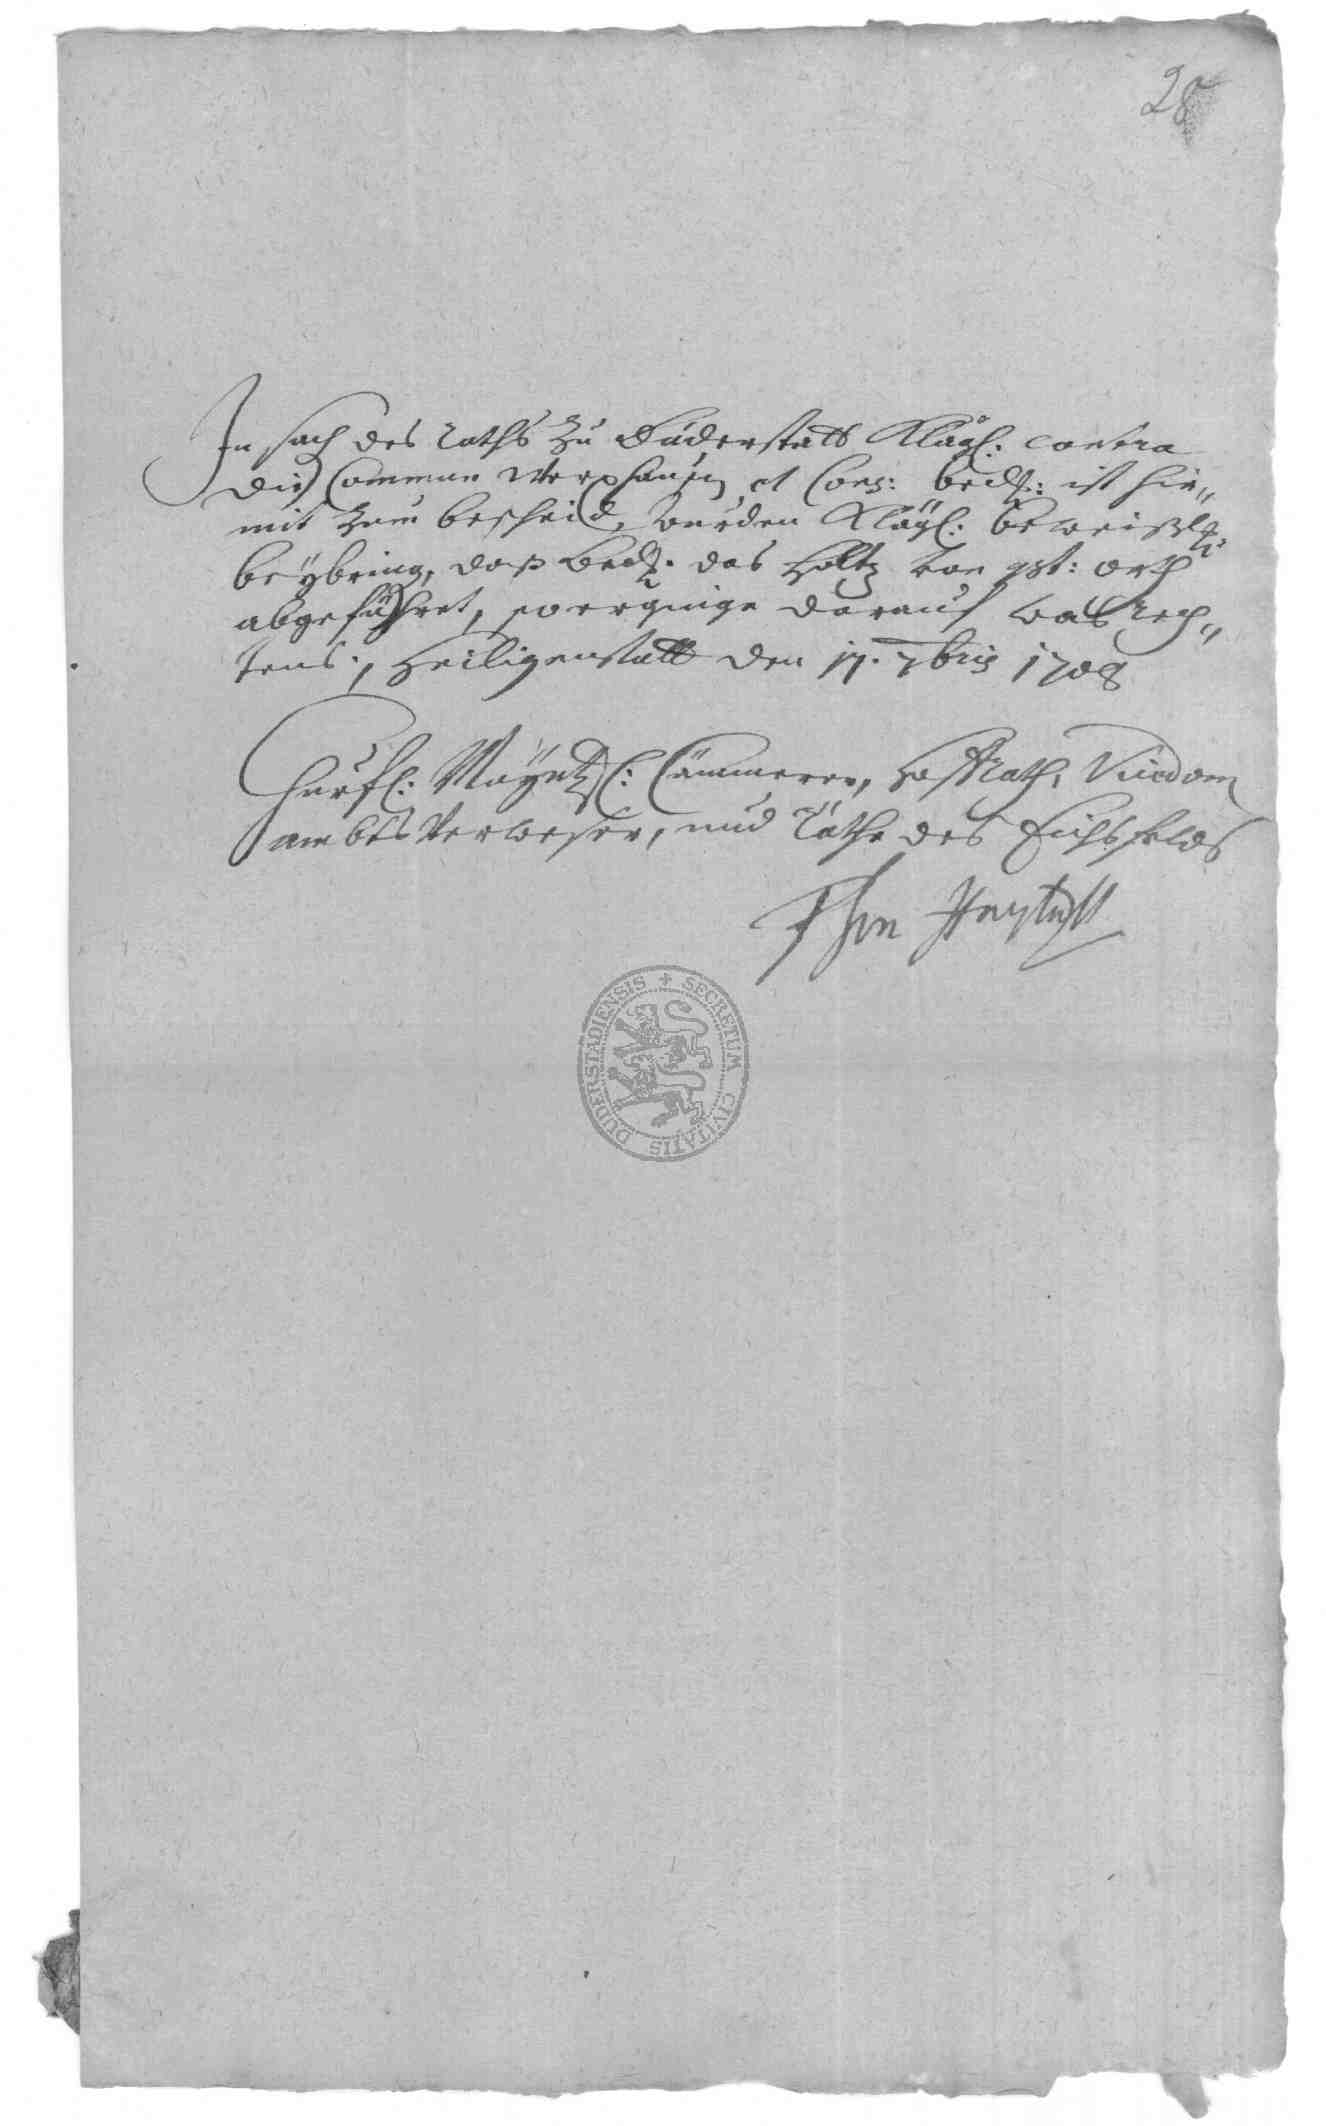 28
In sach des raths zu Duderstatt Klägl: contra
die Commun Werxhausen et Cons: beckl: ist hie„
mit zum bescheid, wurden Klägl: beweißl:
beÿbring, daß beckl. das Holtz von gst: orth
abgeführet, so ergienge darauf was rech„
tens, Heiligenstatt den 17. 7bris 1708
Churfl: Maÿntzl: Cämmerer, HoffRath, Vicedom
ambts Verweser, und räthe des Eichsfelds
SECRETUM CIVITATIS DUDERSTADIENSIS